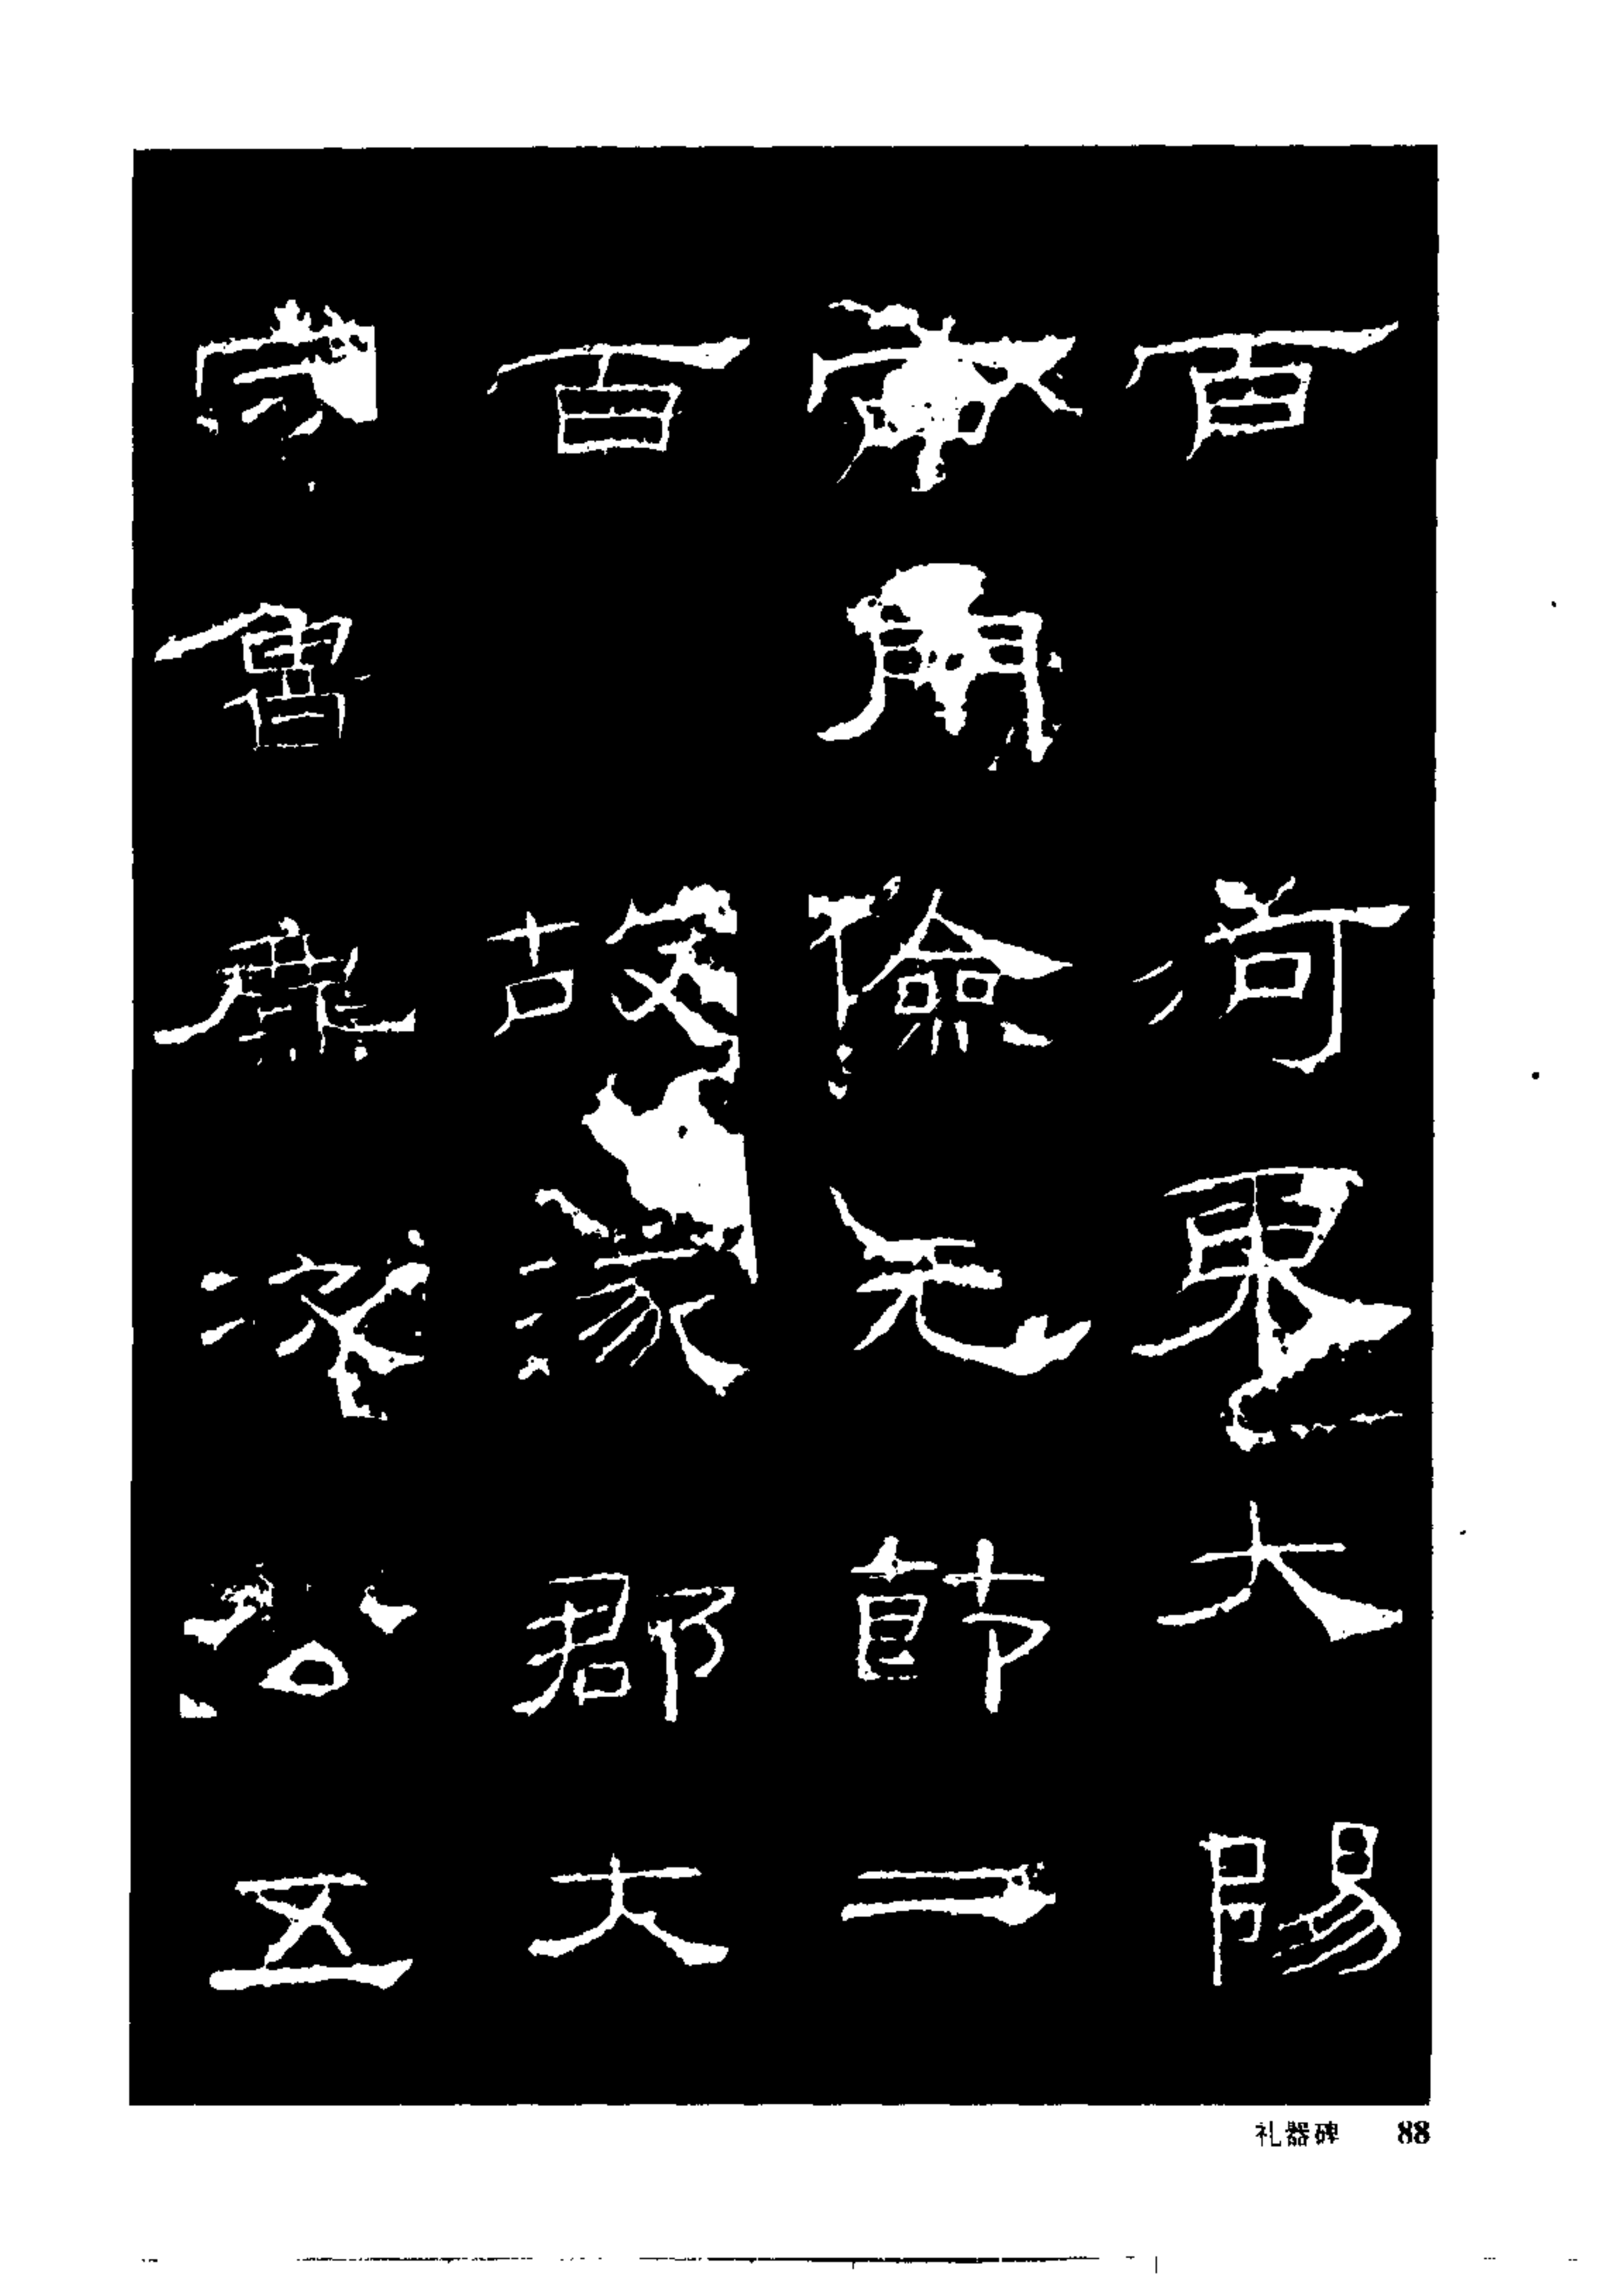 百 河東大陽
西門儉元節二
百 故涿郡大
守魯麃次公五
礼器碑 88